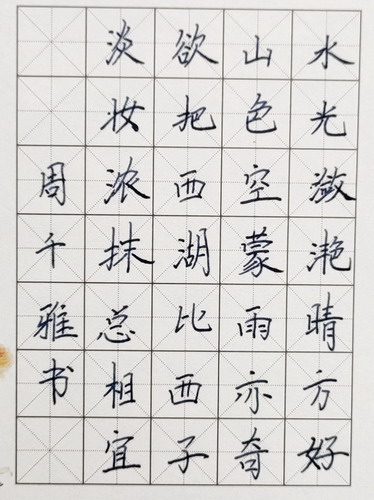 水光潋滟晴方好
山色空蒙雨亦奇
欲把西湖比西子
淡妆浓抹总相宜
周千雅书